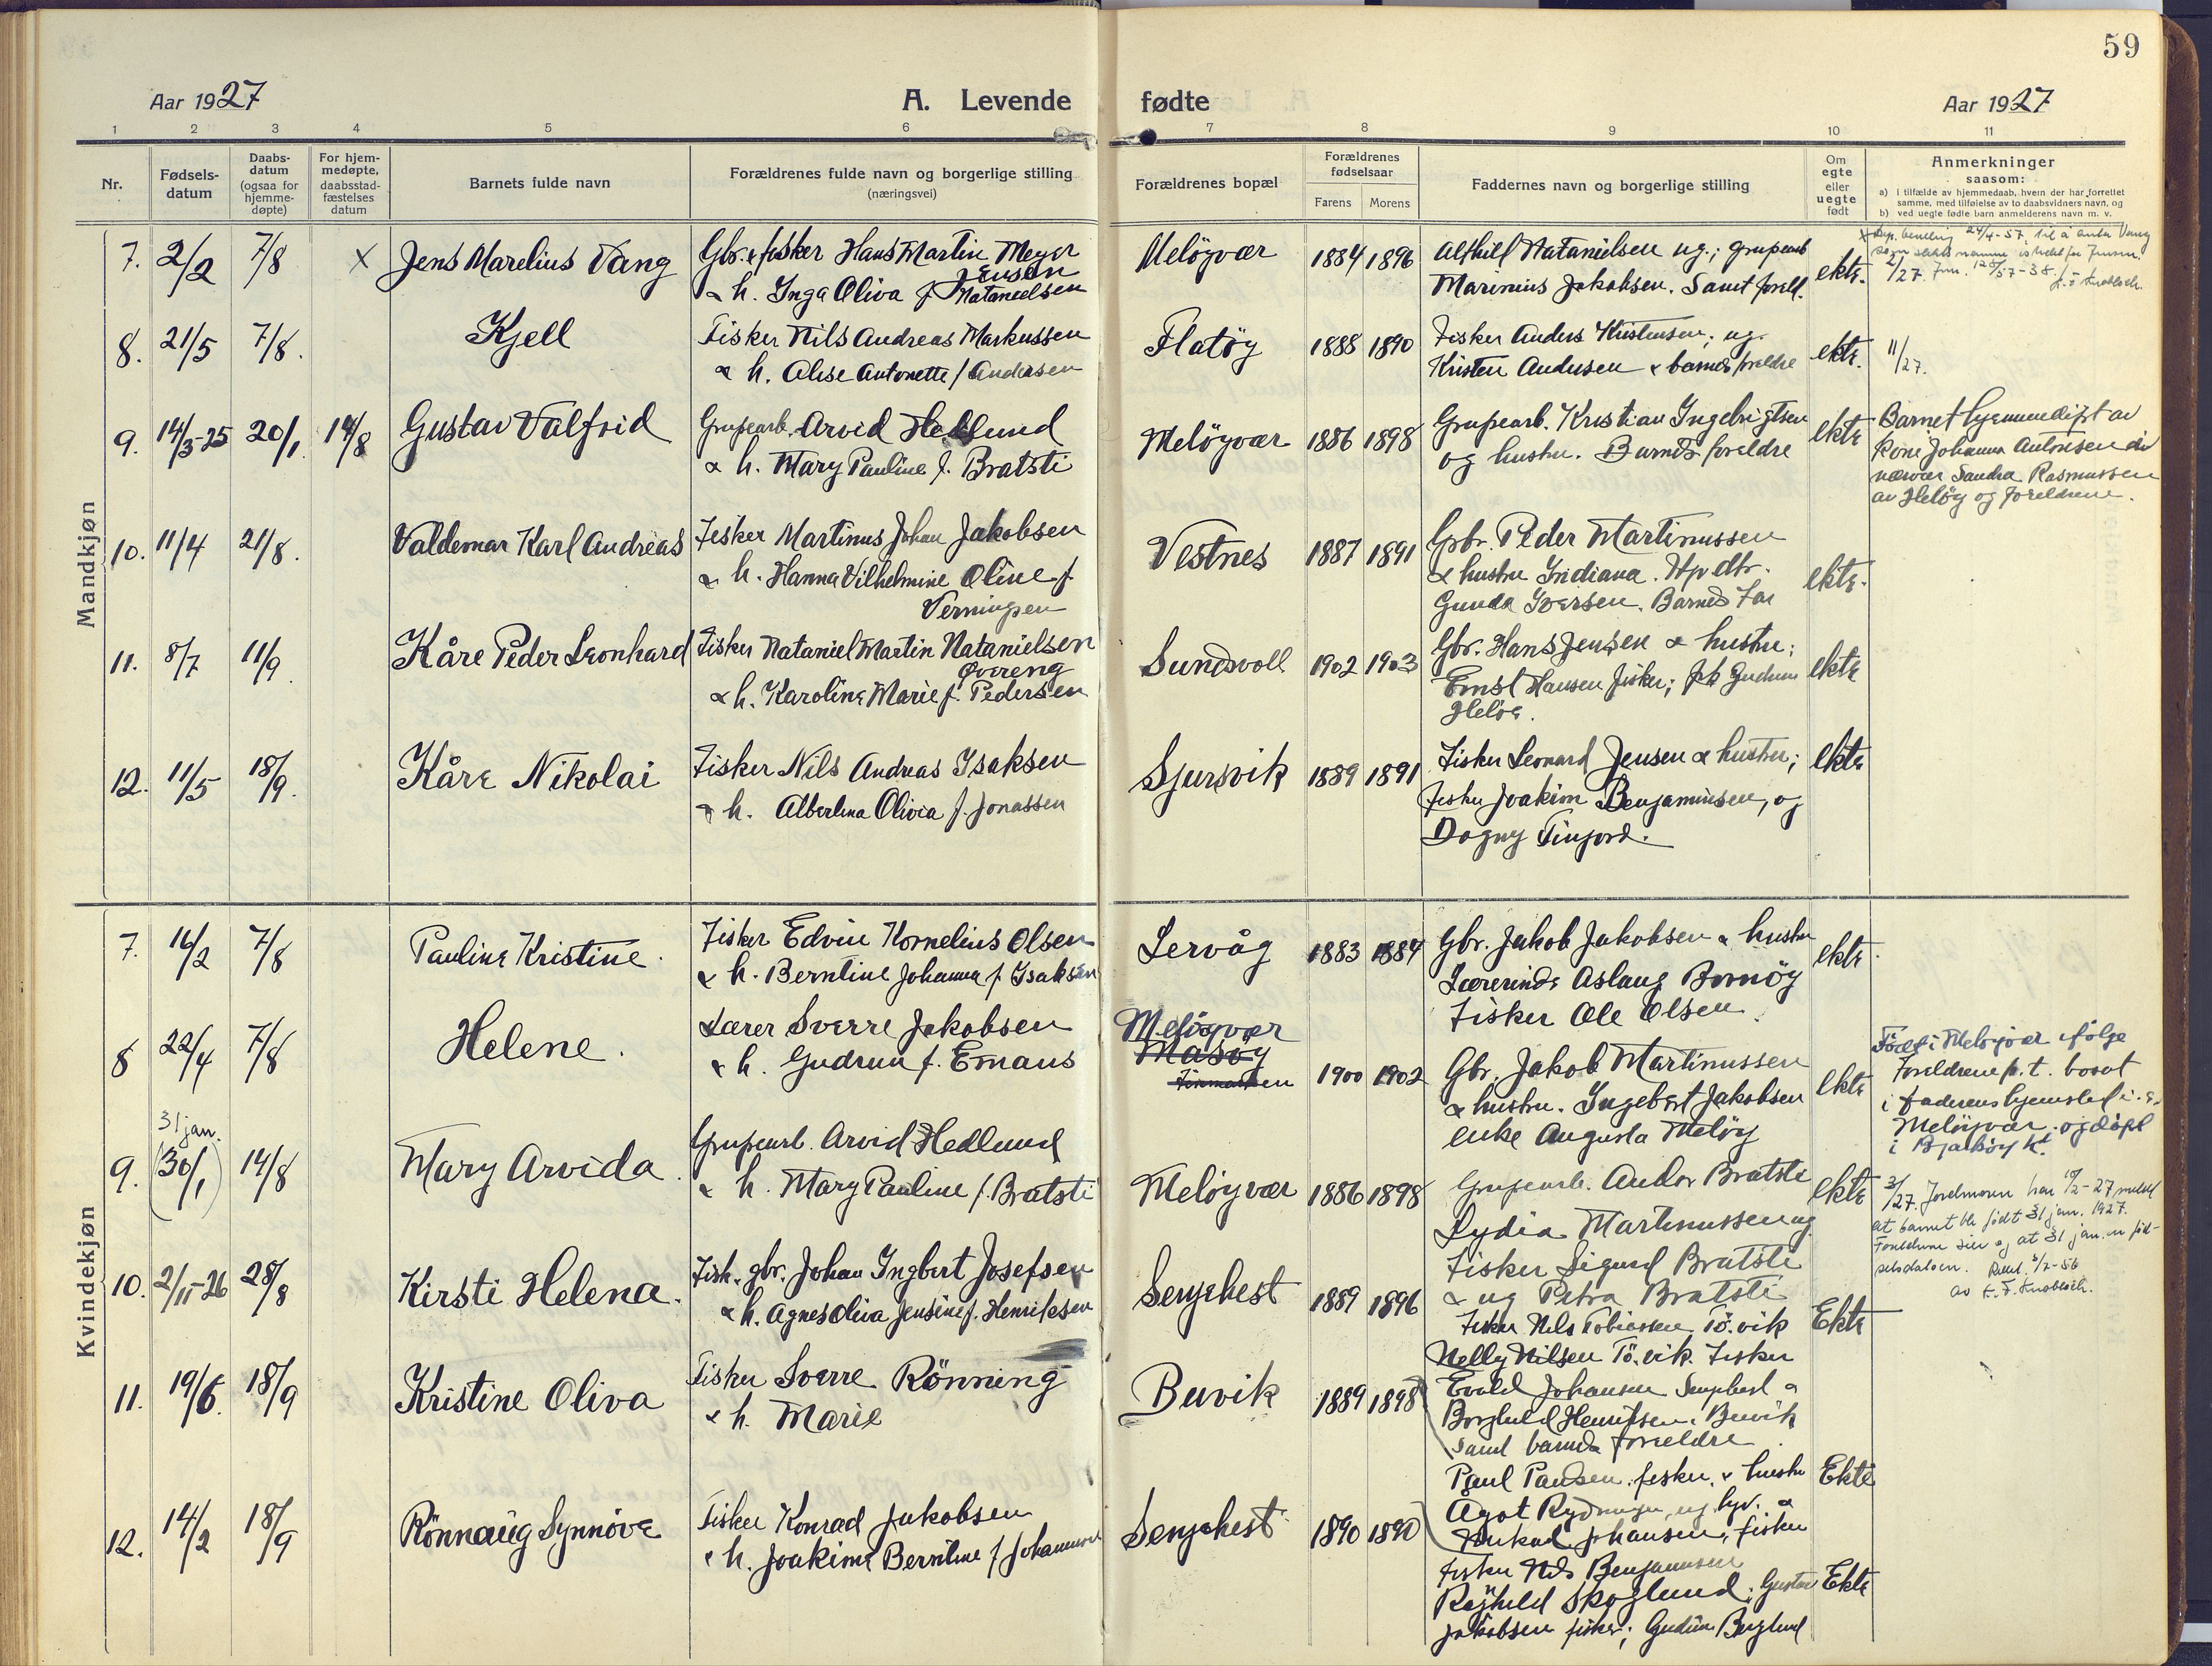 59
Aar 1927
A. Levende fødte
Aar 1927
1 2 3 4 5 6 7 8 9 10 11
Nr.
Fødsels-
datum
Daabs-
datum
(ogsaa for
hjemme-
døpte)
For hjem-
medøpte,
daabsstad-
fæstelses
datum
Barnets fulde navn
Forældrenes fulde navn og borgerlige stilling
(næringsvei)
Forældrenes bopæl
Forældrenes
fødselsaar
Farens Morens
Faddernes navn og borgerlige stilling
Om
egte
eller
uegte
født
Anmerkninger
saasom:
a) i tilfælde av hjemmedaab, hvem der har forrettet
samme, med tilføielse av to daabsvidners navn, og
b) ved uegte fødte barn anmelderens navn m. v.
Mandkjøn
7. 2/2 7/8 x Jens Marelius Vang
Gbr. & fisker Hans Martin Meyer
Jensen
& h. Inga Oliva f. Natanielsen
Meløyvær 1884 1896
Alfhild Natanielsen ug.; grupearb
Marinius Jakobsen. Samt foreld.
ekte.
8. 21/5 7/8. Kjell
Fisker Nils Andreas Markussen
& h. Alise Antonette f Andersen
Flatøy 1888 1890
Fisker Anders Kristensen; ug.
Kristen Andersen & barnets foreldre
ekte. 11/27.
9. 14/3-25 20/1 14/8 Gustav Valfrid
Grupearb. Arvid Hedlund
& h. Mary Pauline f. Bratsti
Meløyvær 1886 1898
Grupearb. Kristian Ingebrigtsen
og hustru. Barnets foreldre
ekte
Barnet hjemmedøpt av
kone Johanna Antonsen
nærvær Sandra Rasmussen
av Heløy og foreldrene.
10. 11/4 21/8. Valdemar Karl Andreas
Fisker Martinus Johan Jakobsen
& h. Hanna Vilhelmine Oline f.
Verningsen
Vestnes 1887 1891
Gbr. Peder Martinussen
& hustru Indiana.
Gunda Iversen. Barnets Far
ekte.
11. 8/7 11/9. Kåre Peder Leonhard
Fisker Nataniel Martin Natanielsen
Øvereng
& h. Karoline Marie f. Pedersen
Sundsvoll 1902 1903
Gbr. Hans Jensen & hustru;
Ernst Hansen fisker; Gudrun
Heløe.
ekte
12. 11/5 18/9. Kåre Nikolai
Fisker Nils Andreas Isaksen
& h. Albertina Olivia f. Jonassen
Sjursvik 1889 1891
Fisker Leonard Jensen & hustru;
fisker Joakim Benjaminsen, og
Dagny Finjord.
ekte
Kvindekjøn
7. 16/2 7/8 Pauline Kristine.
Fisker Edvin Kornelius Olsen
& h. Berntine Johanna f. Isaksen
Lervåg 1883 1884
Gbr. Jakob Jakobsen & hustru
Lærerinde Aslaug Bornøy
Fisker Ole Olsen.
ekte.
8 22/4 7/8 Helene.
Lærer Sverre Jakobsen
& h. Gudrun f. Emaus
Meløyvær
Måsøy
Finmarken 1900 1902
Gbr. Jakob Martinussen
& hustru. Ingebert Jakobsen
enke Augusta Meløy
ekte
Født i Meløyvær ifølge
Foreldrene p. t. bosat
i faderens hjemsted i
Meløyvær. og døpt
i Bjarkøy k.
31 jan.
9. (30/1) 14/8 Mary Arvida.
Grupearb. Arvid Hedlund
& h. Mary Pauline f. Bratsti
Meløyvær 1886 1898
Grupearb. Andor Bratsti
Lydia Martinussen ug.
Fisker Sigurd Bratsti
& ug Petra Bratsti
ekte
3/27. Jordmoren har 10/2-27 meldt
at barnet ble født 31 jan. 1927.
Foreldrene sier og at 31 jan. er fød-
selsdatoen.
10. 2/11-26 28/8 Kirsti Helena.
Fisk. gbr. Johan Ingbert Josefsen
& h. Agnes Oliva Jensine f. Henriksen
Senjehest 1889 1896
Fisker Nils Tobiassen Tö.vik
Nelly Nilsen Tö.vik. Fisker
Evald Johansen Senjehest &
Borghild Henriksen. Buvik
samt barnets foreldre.
Ekte
11. 19/6. 18/9 Kristine Oliva
Fisker Sverre Rönning
& h. Marie
Buvik 1889 1898
Paul Paulsen. fisker. & hustru
Agot Rydningen, ug.
Johansen, fisker
Ekte
12. 14/2 18/9 Rönnaug Synnöve
Fisker Konrad Jakobsen
& h. Joakime Berntine f Johannessen
Senjehest 1890 1890
Fisker Nils Benjaminsen
Skoglund; Gustav
Jakobsen fisker; Gudrun Berglund
Ekte